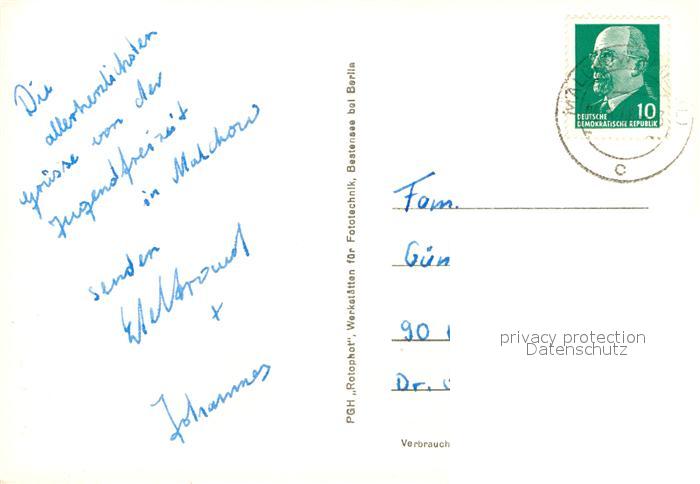 Die
allerherzlichsten
Grüsse von der
Jugendfreizeit
in Malchow
senden
+
Johannes
PGH „Rotophot", Werkstätten für Fototechnik, Bestensee bei Berlin
10
DEUTSCHE
DEMOKRATISCHE REPUBLIK
C
Fam.
Gün
90
Dr.
privacy protection
Datenschutz
Verbrauch